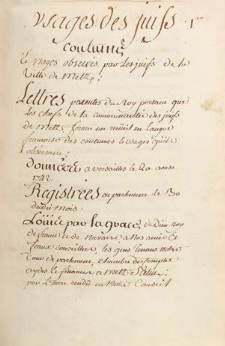 Usages des juifs
coutumes
& usages observés par les juifs de la
Ville de Metz;
Lettres patentes du Roy portant que
les chefs de la communauté des juifs
de Metz, feront un recueil en langue
françoise des coutumes & usages qu'ils
observent;
données a versailles le 20 aoust
1742.
Registrées au parlement le 30
dudit mois
Louis par la grace de Dieu roy
de france et de navarre a nos amés et
feaux conseillers, les gens tenans notre
Cour de parlement, chambre des comptes
aydes & finances a Metz Salut;
par arrest rendu en notre Conseil